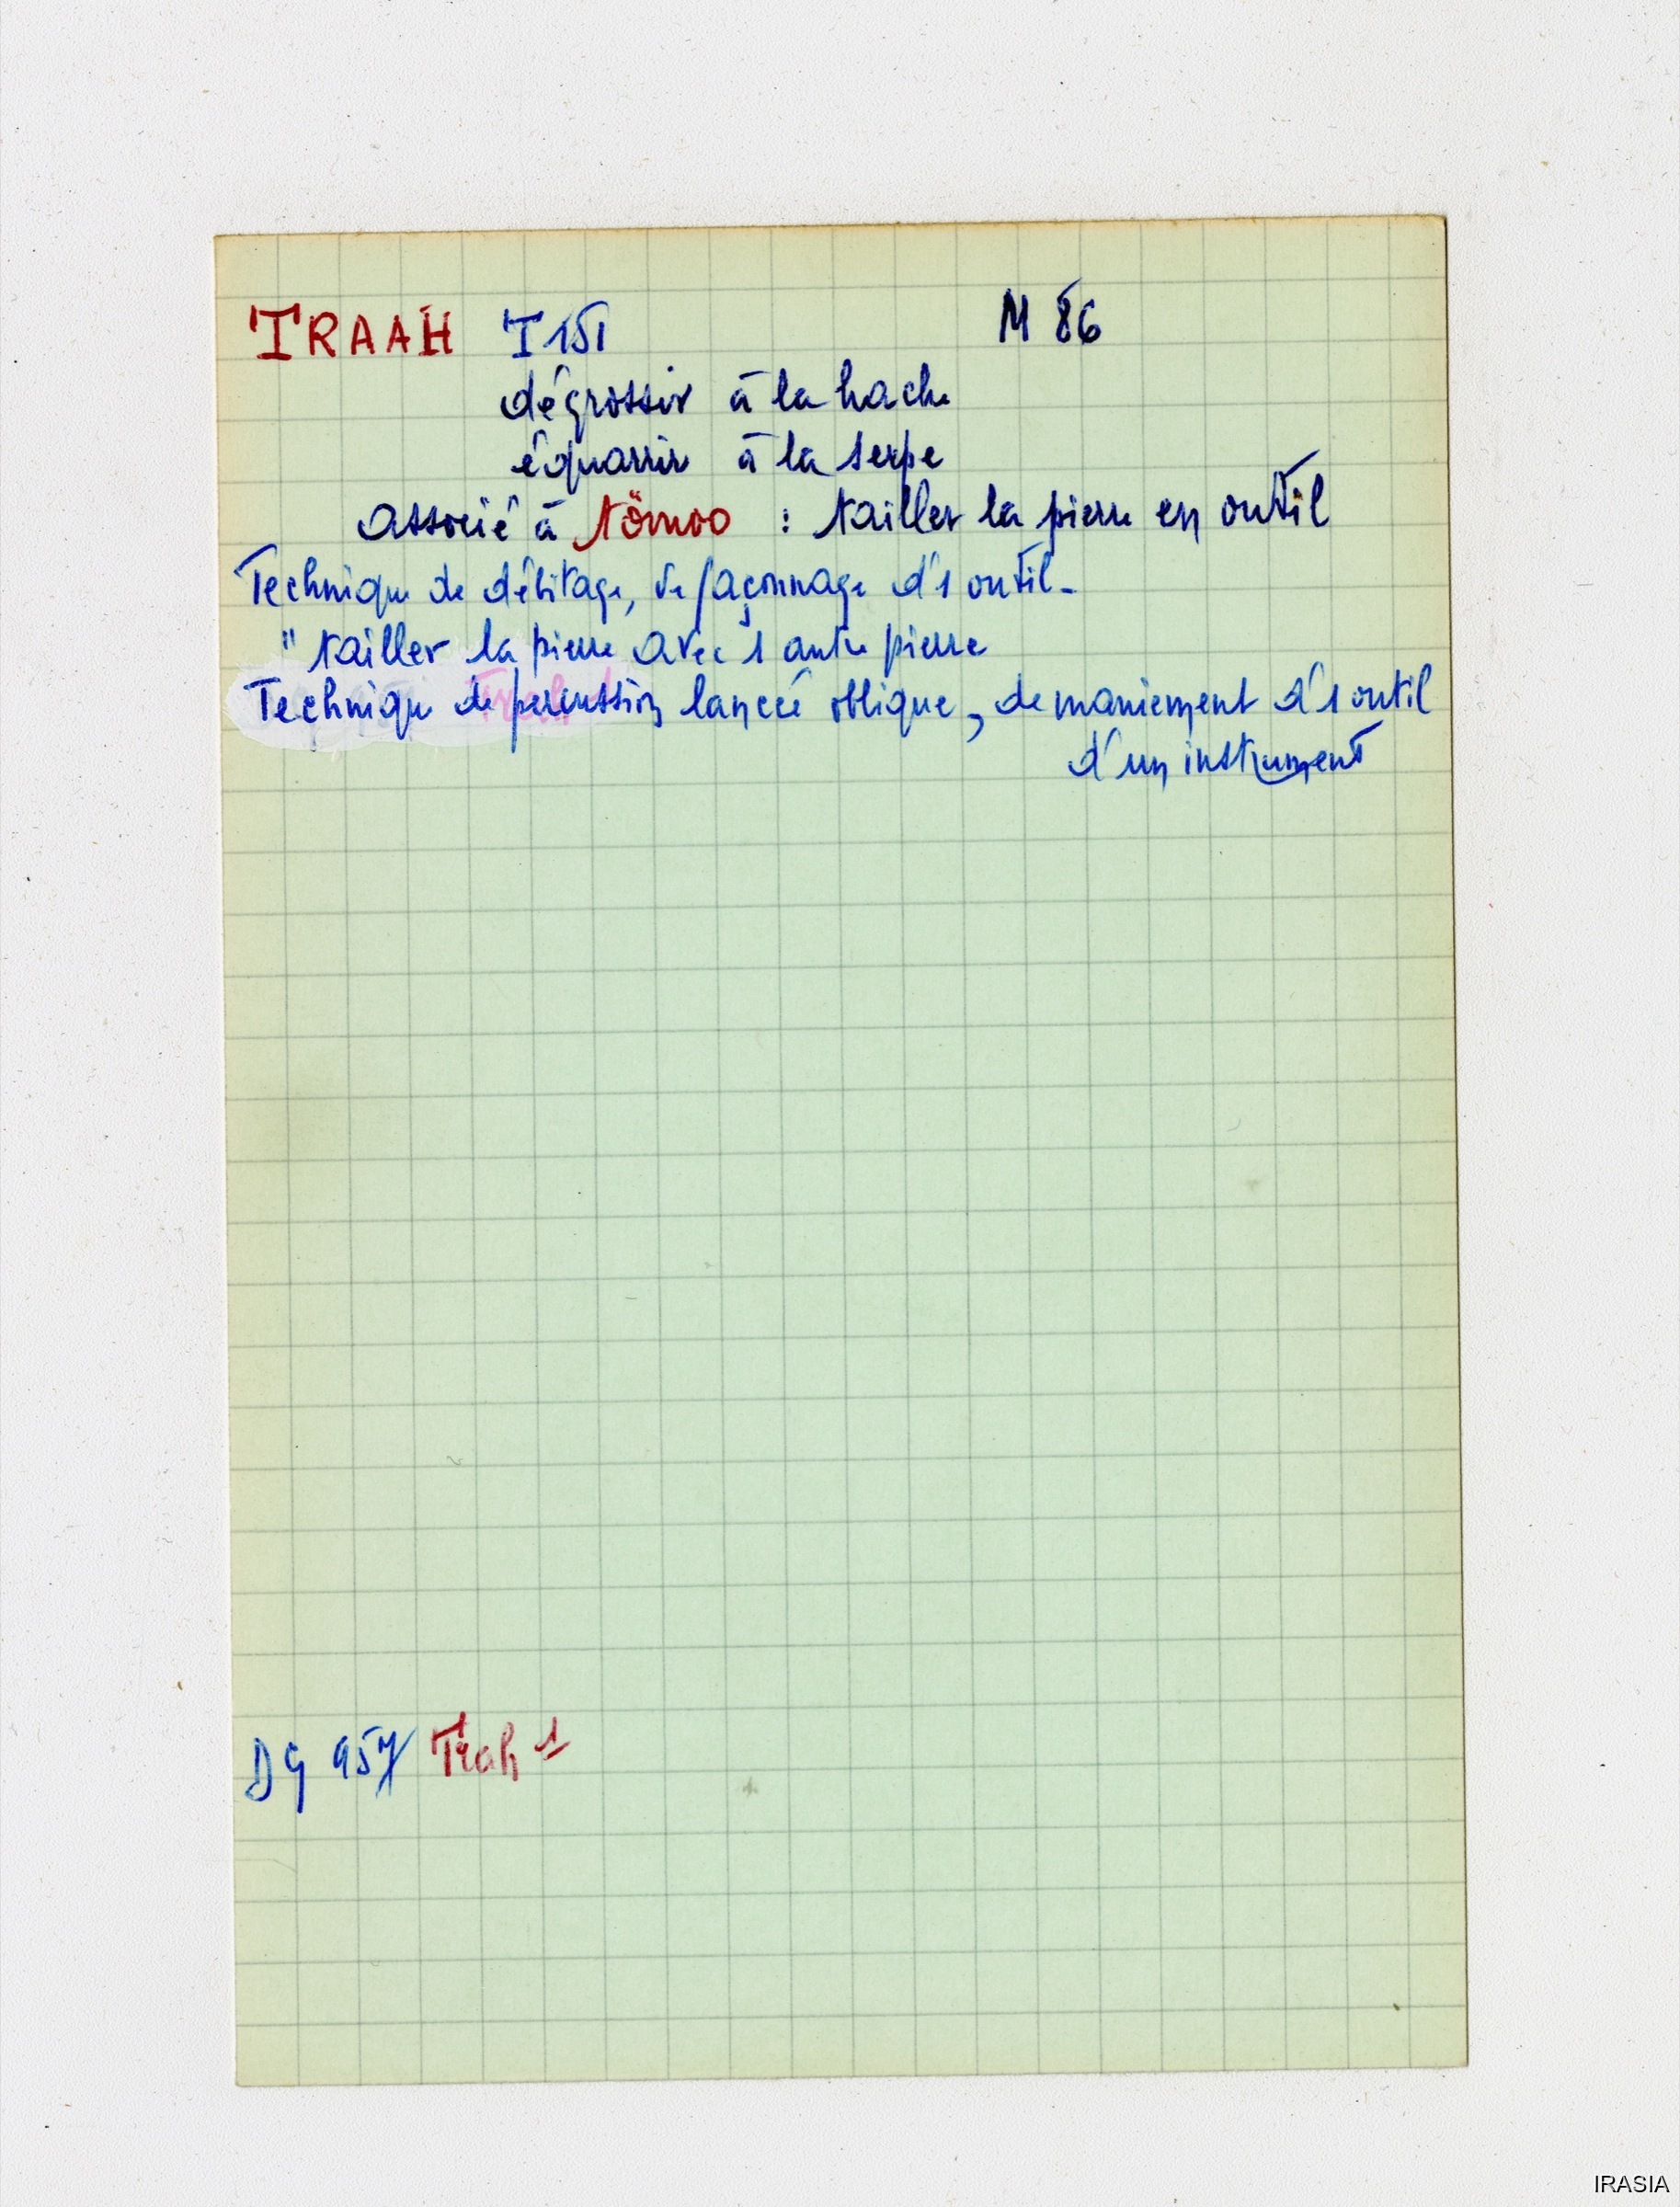 TRAAH T151 M 86
dégrossir à la hache
équarrir à la serpe
associé à tömoo : tailler la pierre en outil
Technique de débitage, de façonnage d'1 outil -
" tailler la pierre avec 1 autre pierre
Technique de percussion lancée oblique, de maniement d'1 outil
d'un instrument
DG 957 Trah 1
IRASIA